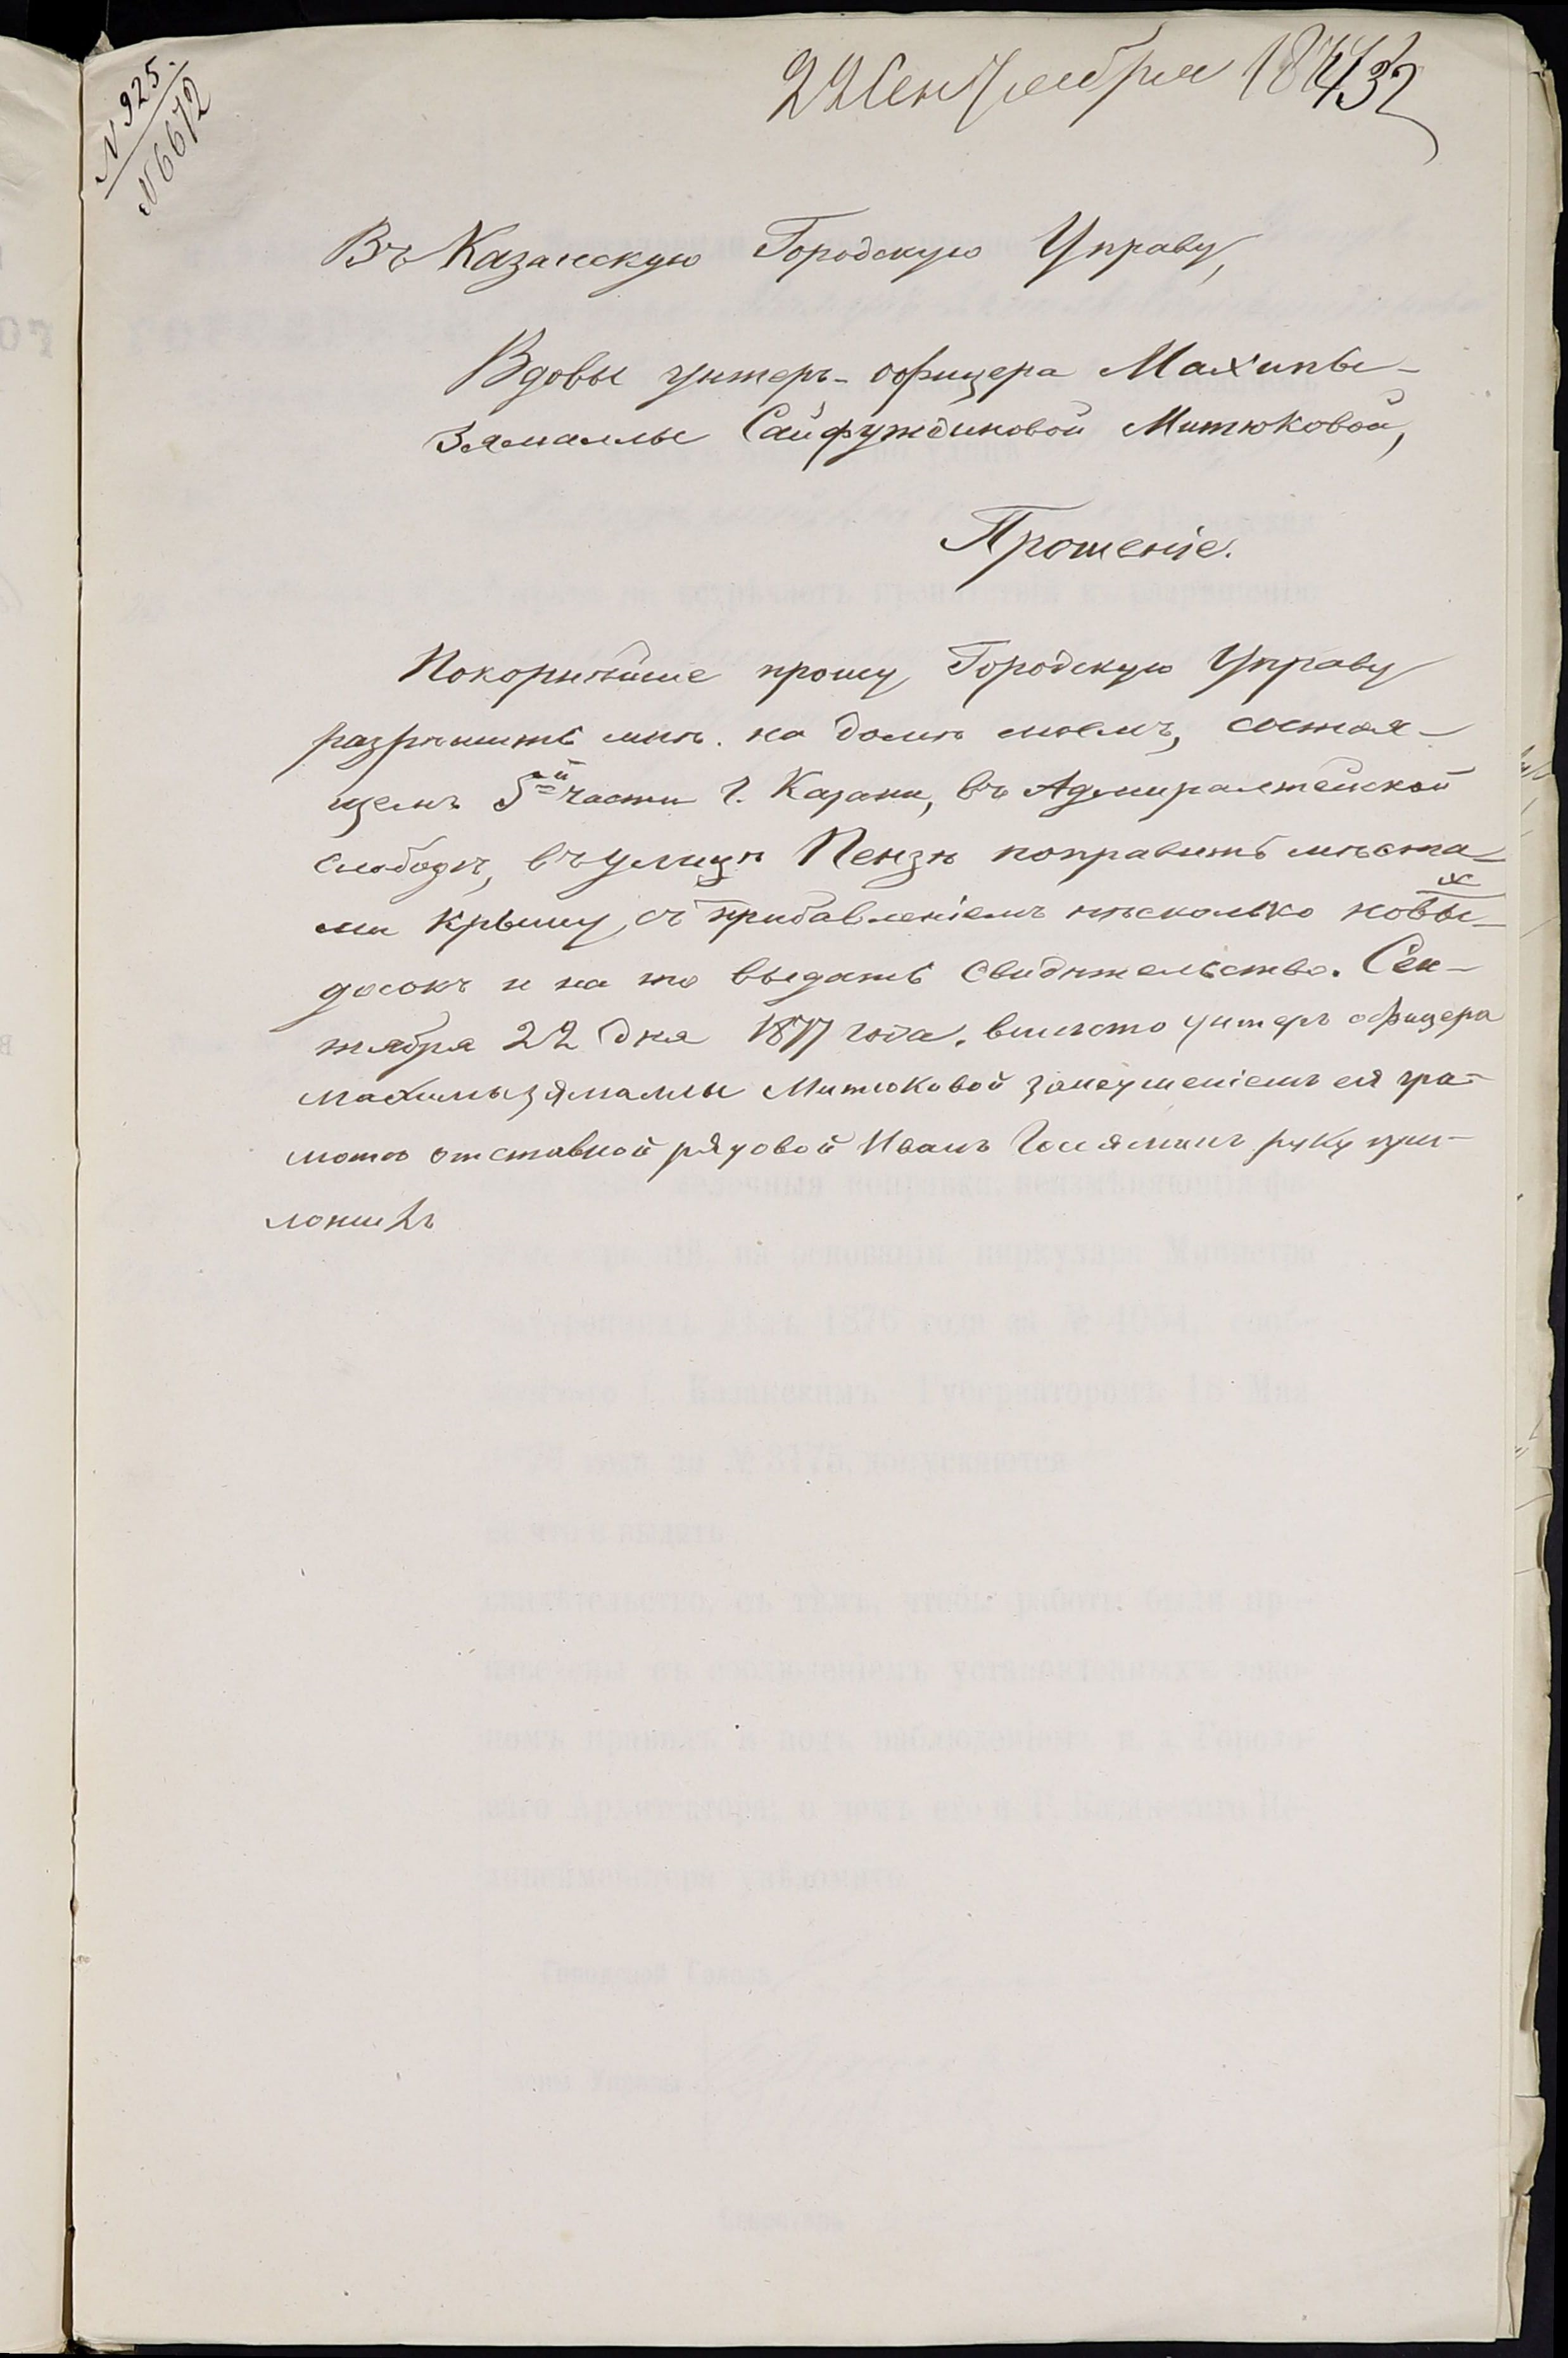 N 925.
N 6672
22 Сентября 1877
32
Въ Казанскую Городскую Управу,
Вдовы унтеръ-офицера Махипы-
Зямаллы Сайфуждиновой Митюковой,
Прошеніе.
Покорнѣйше прошу Городскую Управу
разрѣшить мнѣ на домѣ моемъ, состоя-
щемъ 5й части г. Казани, въ Адмиралтейской
слободѣ, въ улицѣ Пензѣ поправить мѣста-
ми крышу, съ прибавленіемъ нѣсколько новых
досокъ и на то выдать свидѣтельство. Сен-
тября 22 дня 1877 года. вмѣсто унтеръ офицера
махипызямаллы Митюковой занеумѣніемъ ея гра-
мотѣ отставной рядовой Иванъ руку при-
ложилъ